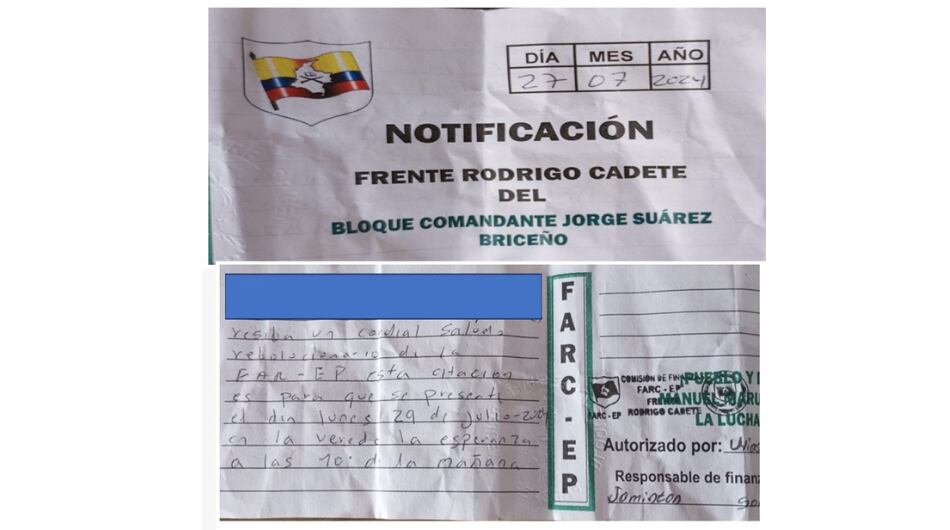 DÍA MES AÑO
27 07 2024
NOTIFICACIÓN
FRENTE RODRIGO CADETE
DEL
BLOQUE COMANDANTE JORGE SUÁREZ
BRICEÑO
resiba un cordial Saludo
rebolocionario de la
FAR-EP esta citacion
es para que se presente
el dia lunes 29 de Julio-202
en la vereda la esperanza
a las 10: de la mañana
FARC-EP
COMISIÓN DE FIN
FARC-EP
FRENTE
RODRIGO CADETE
FARC-EP
PUEBLO Y
MANUEL MARU
LA LUCHA
Autorizado por:
Responsable de finan